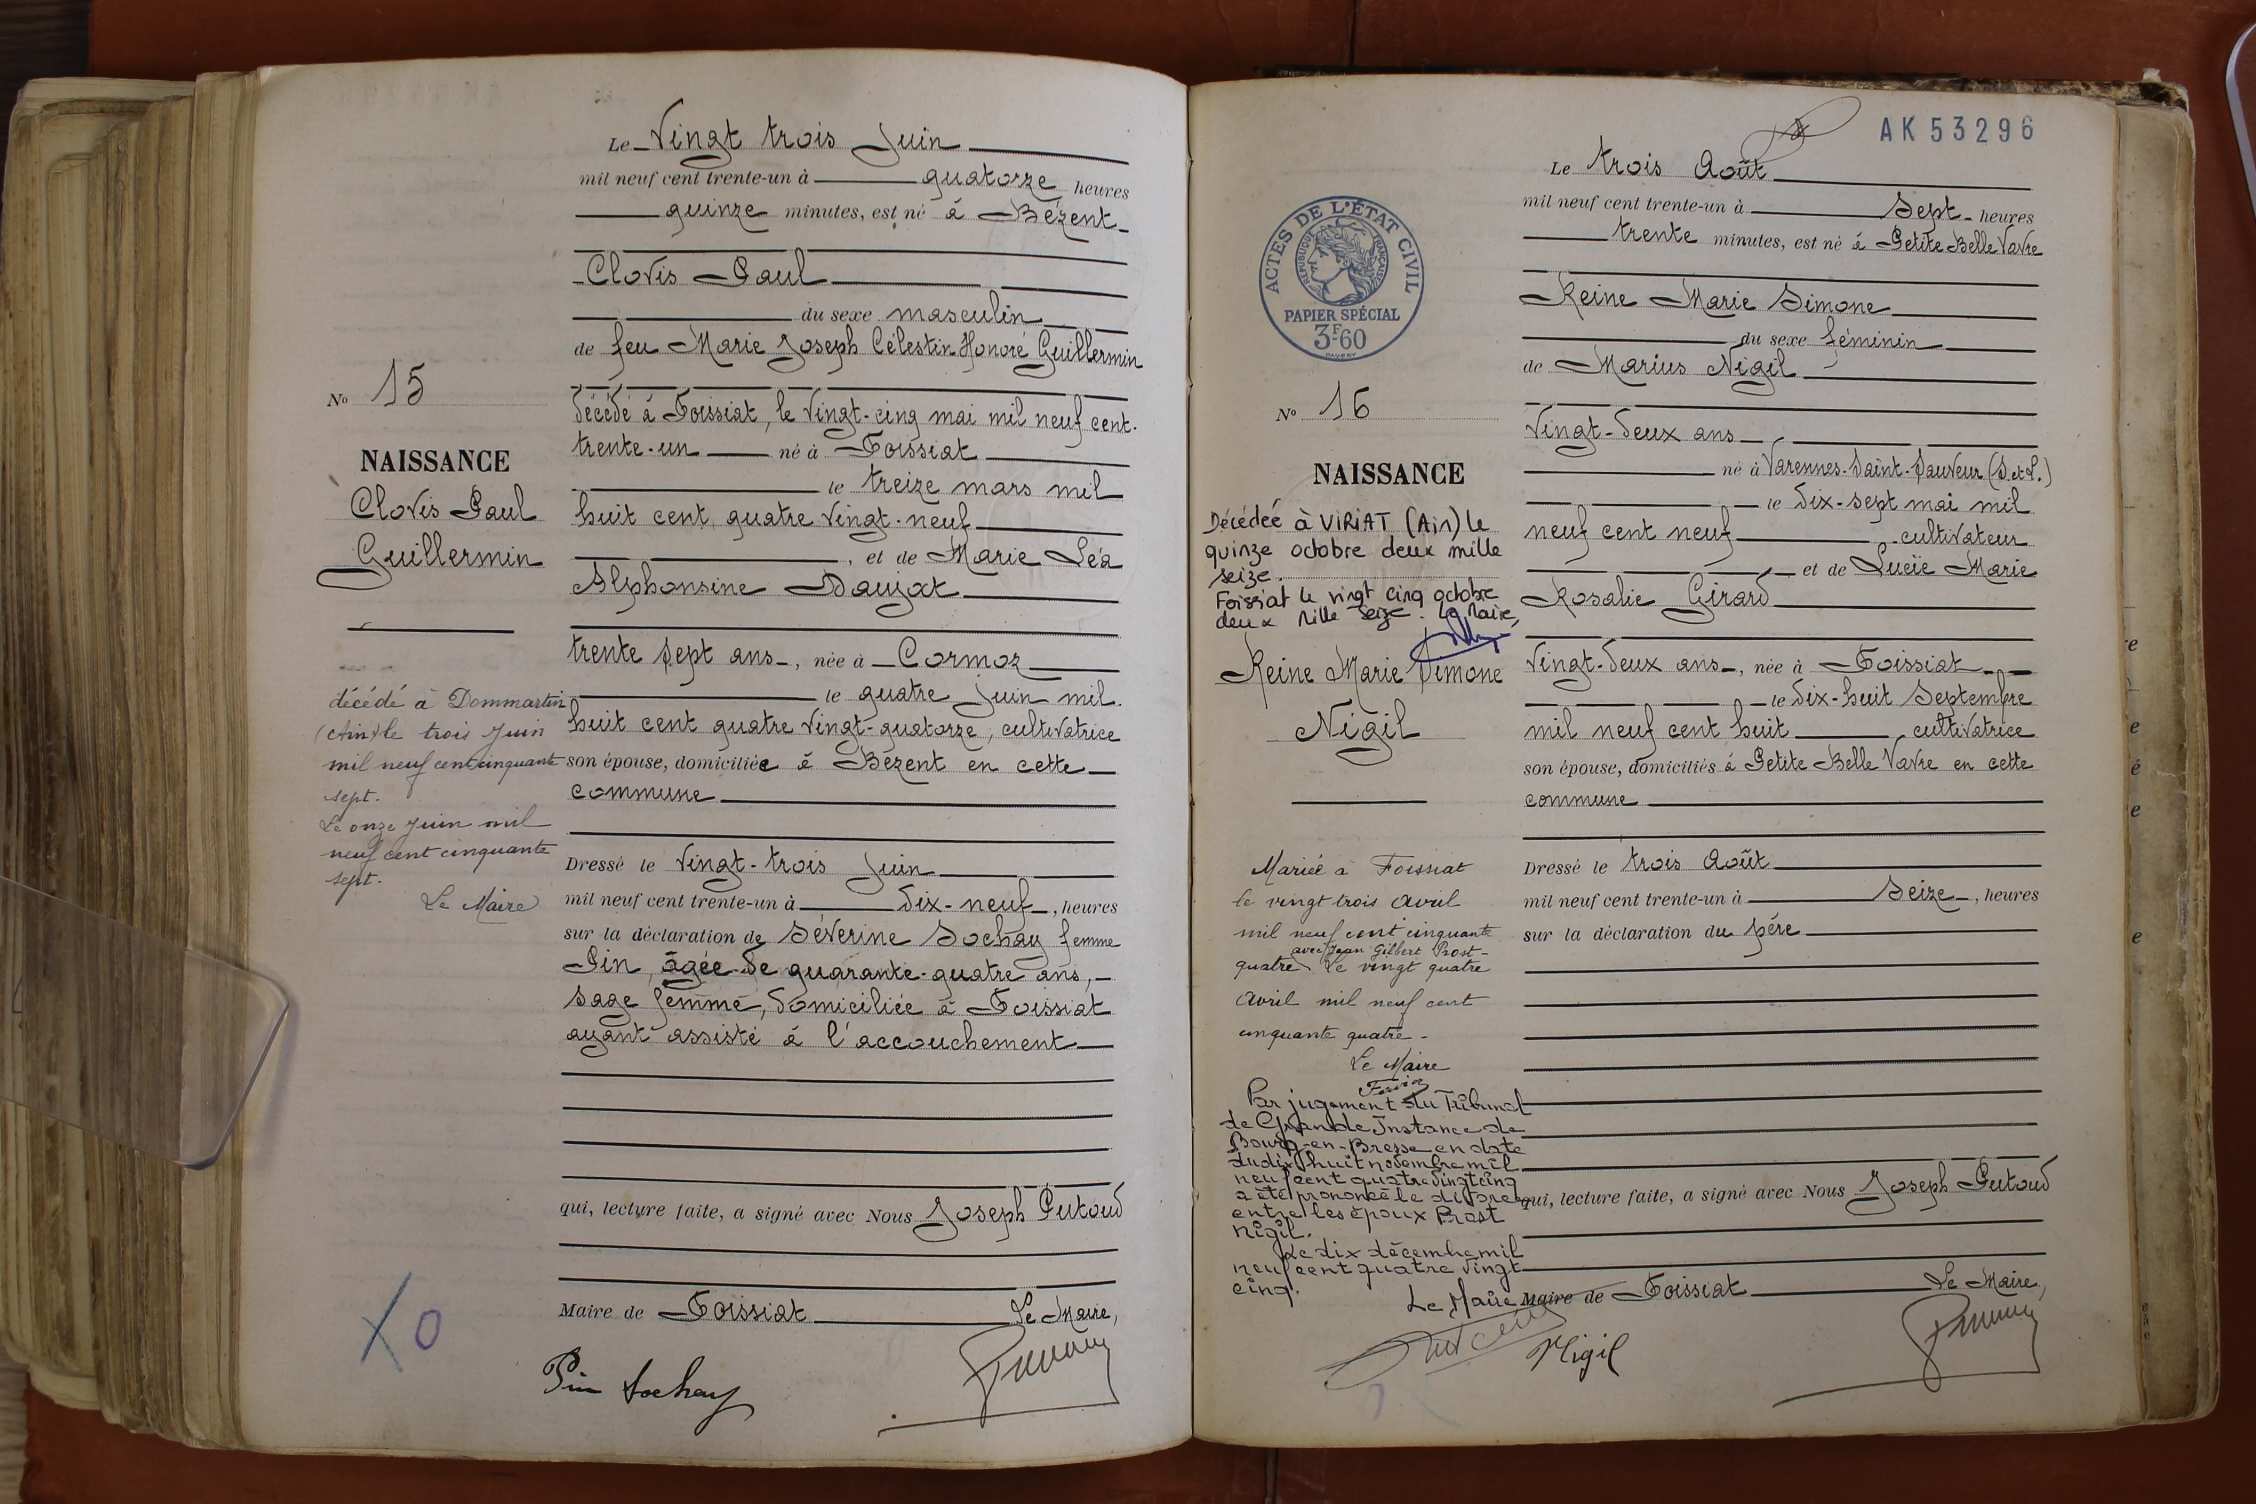 Le Vingt trois Juin
mil neuf cent trente-un à quatorze heures
quinze minutes, est né à Bézent
Clovis Paul
du sexe masculin
de feu Marie Joseph Célestin Honoré Guillermin
décédé à Foissiat, le vingt-cinq mai mil neuf cent
trente-un né à Foissiat
le treize mars mil
huit cent quatre vingt-neuf
, et de Marie Léa
Alphonsine Daujat
trente sept ans, née à Cormoz
le quatre Juin mil
huit cent quatre vingt-quatorze, cultivatrice
son épouse, domiciliée à Bézent en cette
commune
Dressé le vingt-trois Juin
mil neuf cent trente-un à dix-neuf, heures
sur la déclaration de Séverine Sochay femme
Pin, âgée de quarante-quatre ans,
sage femme, domiciliée à Foissiat
ayant assisté à l'accouchement
qui, lecture faite, a signé avec Nous Joseph Putoud
Maire de Foissiat Le Maire,
Pin Sochay
No 15
NAISSANCE
Clovis Paul
Guillermin
décédé à Dommartin
(Ain) le trois Juin
mil neuf cent cinquante
sept.
Le onze Juin mil
neuf cent cinquante
sept.
Le Maire
X 0
AK 53296
Le trois Août
mil neuf cent trente-un à Sept heures
trente minutes, est né à Petite Belle Vavre
Reine Marie Simone
du sexe féminin
de Marius Nigil
Vingt-deux ans
né à Varennes-Saint-Sauveur (S.et L.)
le dix-sept mai mil
neuf cent neuf cultivateur
et de Lucie Marie
Rosalie Girard
Vingt-deux ans, née à Foissiat
le dix-huit Septembre
mil neuf cent huit cultivatrice
son épouse, domiciliés à Petite Belle Vavre en cette
commune
Dressé le trois Août
mil neuf cent trente-un à Seize, heures
sur la déclaration du père
qui, lecture faite, a signé avec Nous Joseph Putoud
Maire de Foissiat Le Maire,
Nigil
ACTES DE L'ÉTAT CIVIL
RÉPUBLIQUE FRANÇAISE
PAPIER SPÉCIAL
3F60
No 16
NAISSANCE
Décédée à VIRIAT (Ain) le
quinze octobre deux mille
seize.
Foissiat le vingt cinq octobre
deux mille seize. Le Maire,
Reine Marie Simone
Nigil
Mariée à Foissiat
le vingt trois avril
mil neuf cent cinquante
avec Jean Gilbert Prost-
quatre Le vingt quatre
avril mil neuf cent
cinquante quatre-
Le Maire
Par jugement du Tribunal
de Grande Instance de
Bourg-en-Bresse en date
du dix huit novembre mil
neuf cent quatre vingt cinq
a été prononcé le divorce
entre les époux Prost
Nigil.
Le dix décembre mil
neuf cent quatre vingt
cinq.
Le Maire